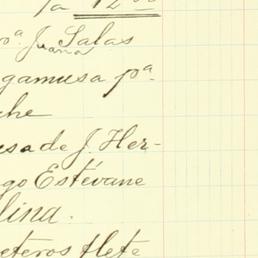 pª Juana Salas
gamusa pª
che
usa de J. Her-
go Estévane
lina.
eteros flete